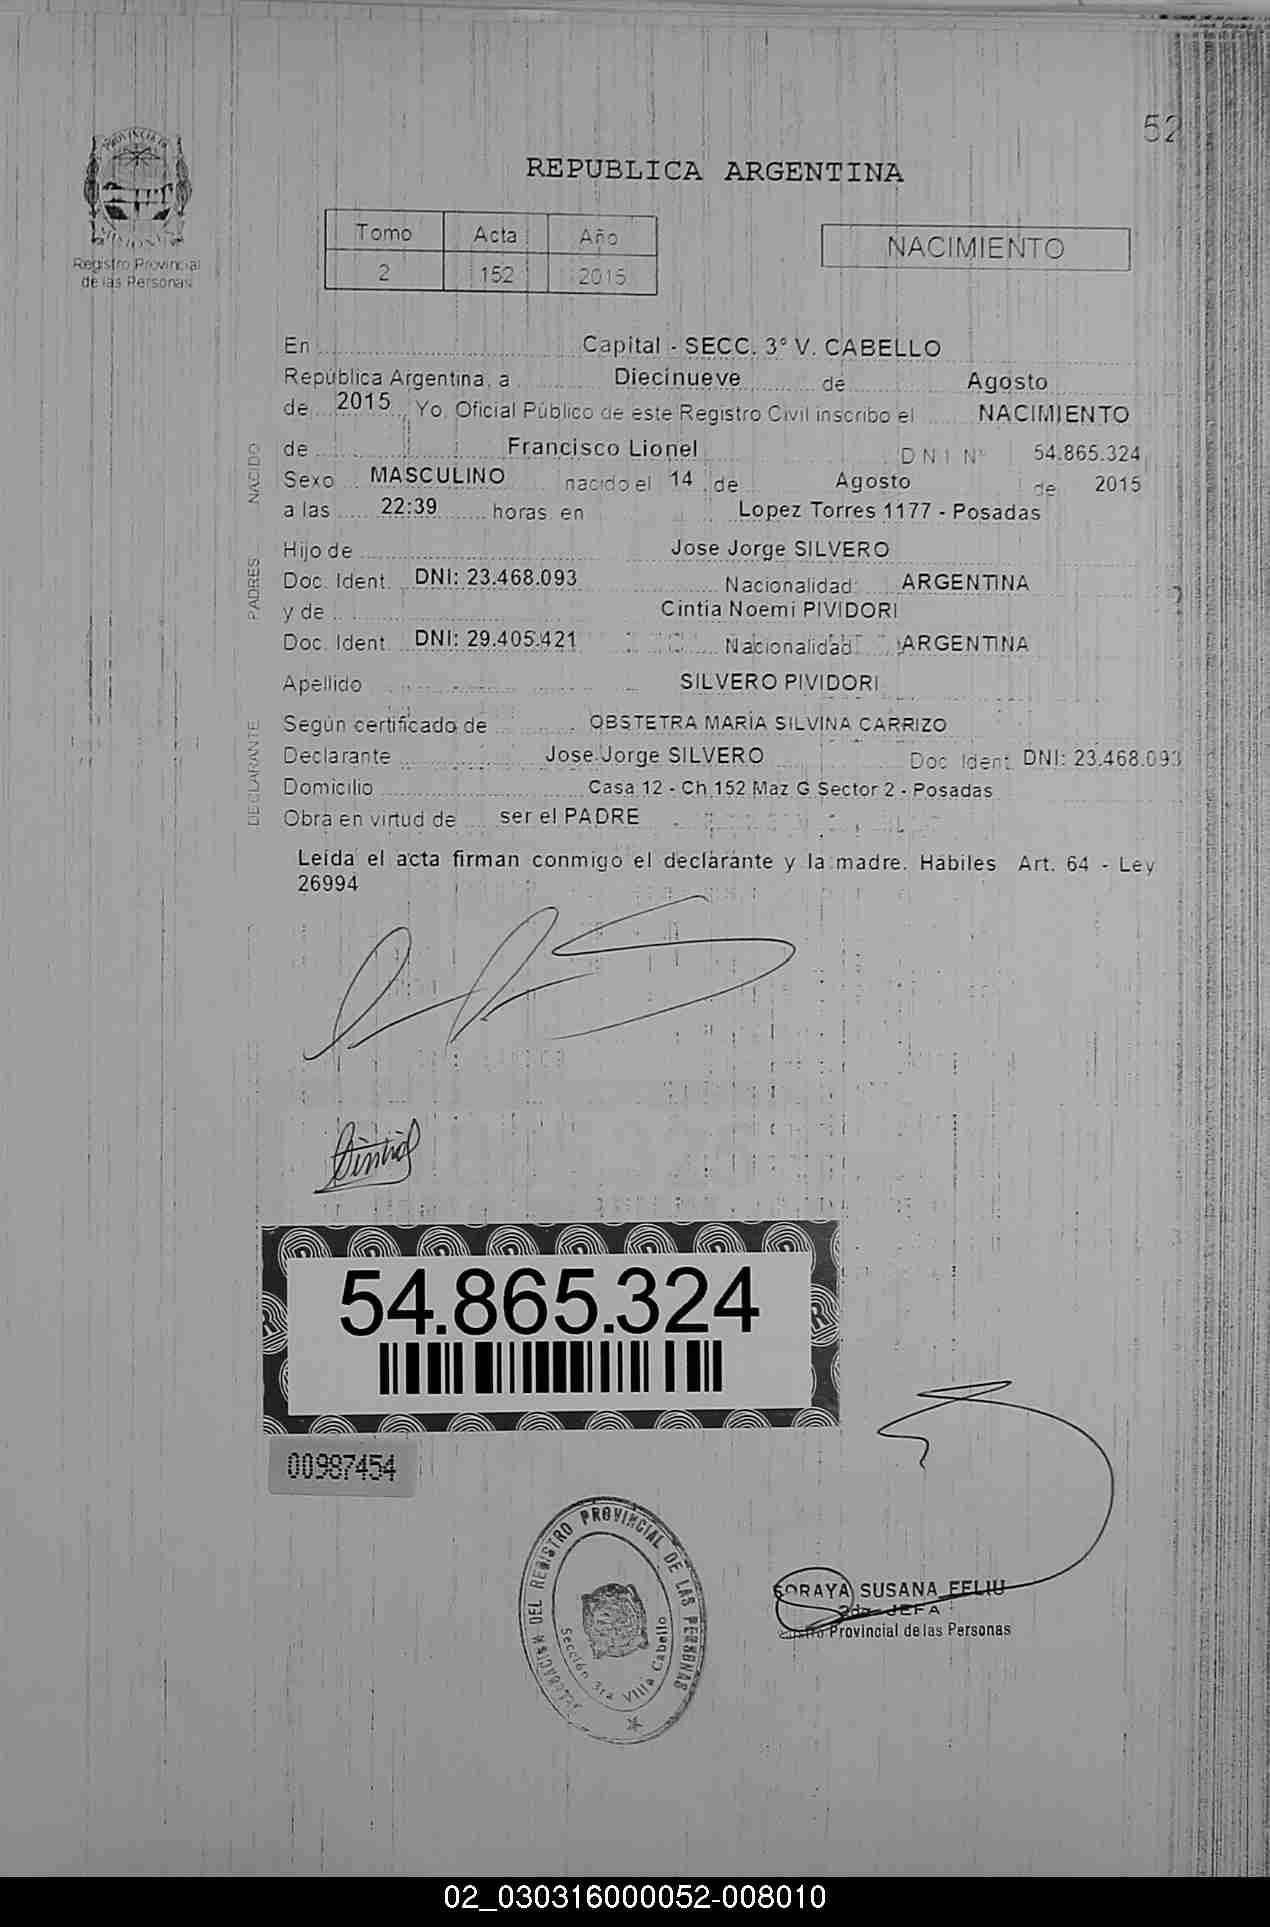 52
PROVINCIA DE
MISIONES
Registro Provincial
de las Personas
REPUBLICA ARGENTINA
Tomo Acta Año
2 152 2015
NACIMIENTO
En Capital - SECC. 3° V. CABELLO
República Argentina, a Diecinueve de Agosto
de 2015 Yo, Oficial Público de este Registro Civil inscribo el NACIMIENTO
NACIDO
de Francisco Lionel D N I N° 54.865.324
Sexo MASCULINO nacido el 14 de Agosto de 2015
a las 22:39 horas en Lopez Torres 1177 - Posadas
PADRES
Hijo de Jose Jorge SILVERO
Doc. Ident. DNI: 23.468.093 Nacionalidad: ARGENTINA
y de Cintia Noemi PIVIDORI
Doc. Ident. DNI: 29.405.421 Nacionalidad ARGENTINA
Apellido SILVERO PIVIDORI
DECLARANTE
Según certificado de OBSTETRA MARÍA SILVINA CARRIZO
Declarante Jose Jorge SILVERO Doc. Ident. DNI: 23.468.093
Domicilio Casa 12 - Ch 152 Maz G Sector 2 - Posadas
Obra en virtud de ser el PADRE
Leída el acta firman conmigo el declarante y la madre. Hábiles Art. 64 - Ley
26994
Cintia
54.865.324
00987454
DEL REGISTRO PROVINCIAL DE LAS PERSONAS
Sección 3ra Villa Cabello
SORAYA SUSANA FELIU
2da JEFA
Provincial de las Personas
02_030316000052-008010